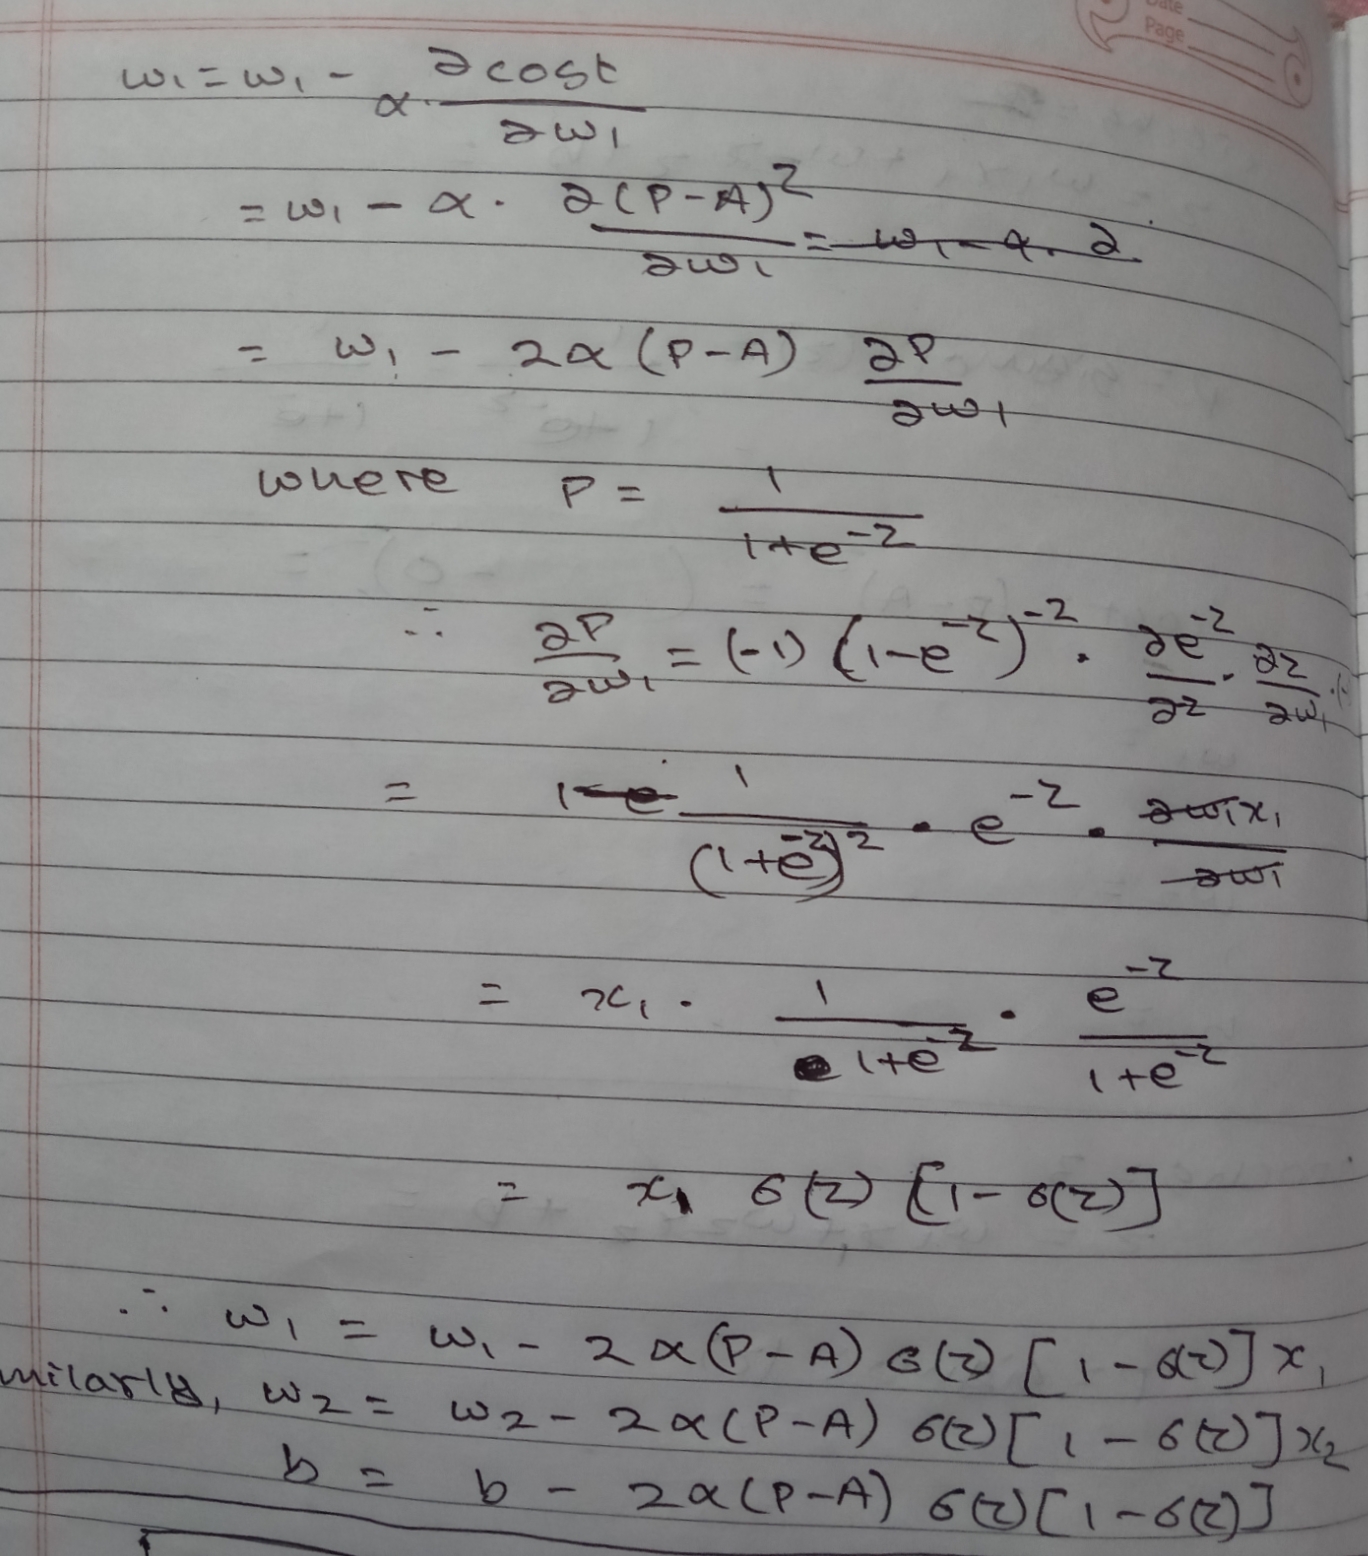 Date
Page
w₁ = w₁ - α · ∂cost/∂w₁
= w₁ - α · ∂(P-A)²/∂w₁ = w₁ - α · ∂
= w₁ - 2α (P-A) ∂P/∂w₁
where P = 1/(1+e^-z)
∴ ∂P/∂w₁ = (-1) (1-e^-z)^-2 · ∂e^-z/∂z · ∂z/∂w₁
= 1-e 1/(1+e^-z)² · e^-z · ∂w₁x₁/∂w₁
= x₁ · 1/(1+e^-z) · e^-z/(1+e^-z)
= x₁ σ(z) [1-σ(z)]
∴ w₁ = w₁ - 2α(P-A) σ(z) [1-σ(z)] x₁
milarly, w₂ = w₂ - 2α(P-A) σ(z) [1-σ(z)] x₂
b = b - 2α(P-A) σ(z) [1-σ(z)]